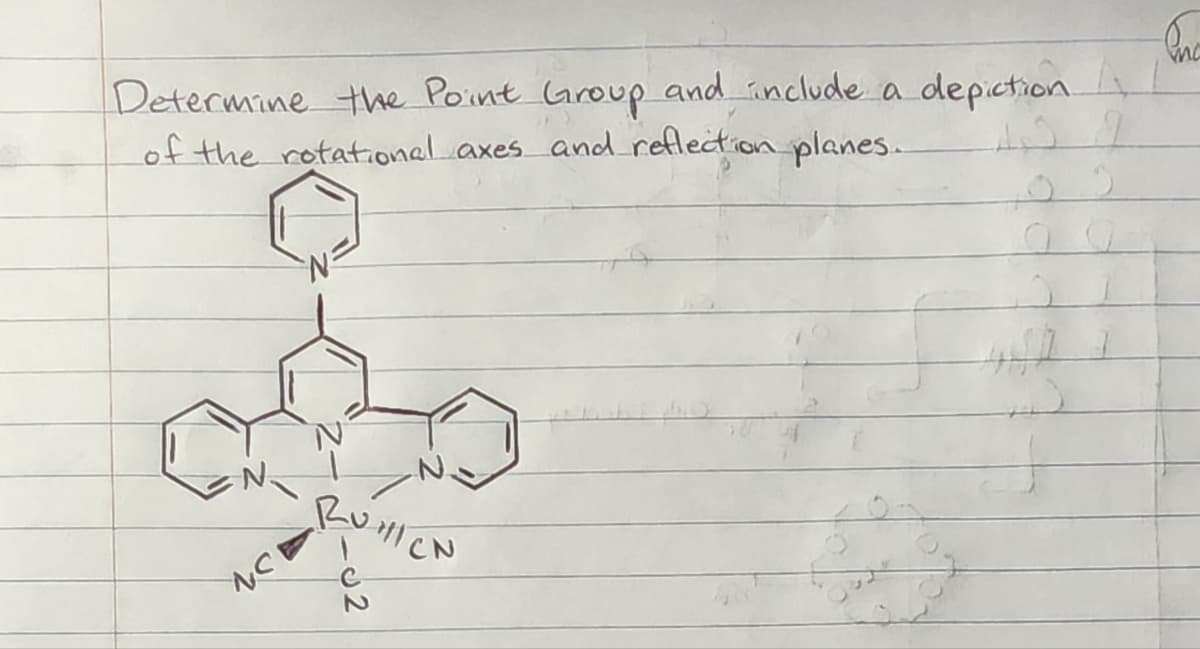 Determine the Point Group and include a depiction
of the rotational axes and reflection planes.
N
N
N N
Ru
NC CN
C
N